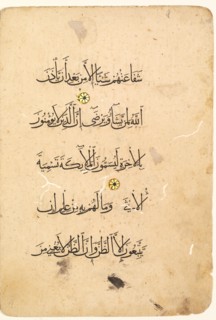 شفاعتهم شيئا الا من بعد ان ياذن
الله لمن يشا ويرضى ان الذين لا يؤمنون
بالاخرة ليسمون الملائكة تسمية
الانثى وما لهم به من علم ان
يتبعون الا الظن وان الظن لا يغني من